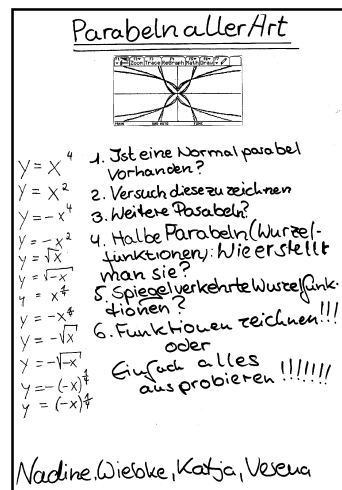 Parabeln aller Art
Zoom Trace ReGraph Math Draw
MAIN RAD AUTO FUNC
y = x⁴
y = x²
y = -x⁴
y = -x²
y = √x
y = √-x
y = x^¼
y = -x^¼
y = -√x
y = -√-x
y = -(-x)^¼
y = (-x)^¼
1. Ist eine Normalparabel
vorhanden?
2. Versuch diese zu zeichnen
3. Weitere Parabeln?
4. Halbe Parabeln (Wurzel-
funktionen): Wie erstellt
man sie?
5. Spiegelverkehrte Wurzelfunk-
tionen?
6. Funktionen zeichnen!!!
oder
Einfach alles
ausprobieren !!!!!!!
Nadine, Wiebke, Katja, Verena